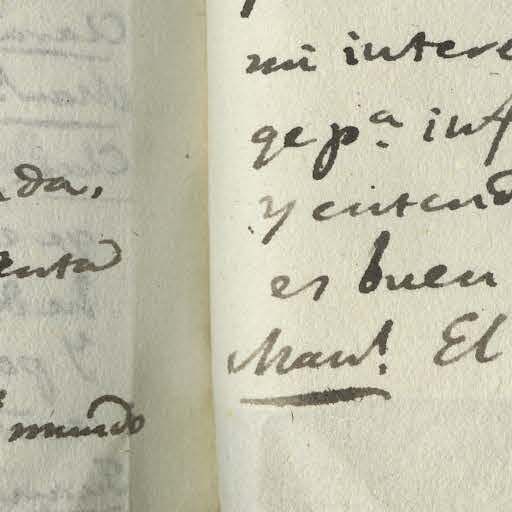 da,
enta
mundo
mi intere
qe pa. inf
y entend
es buen
Manl. El